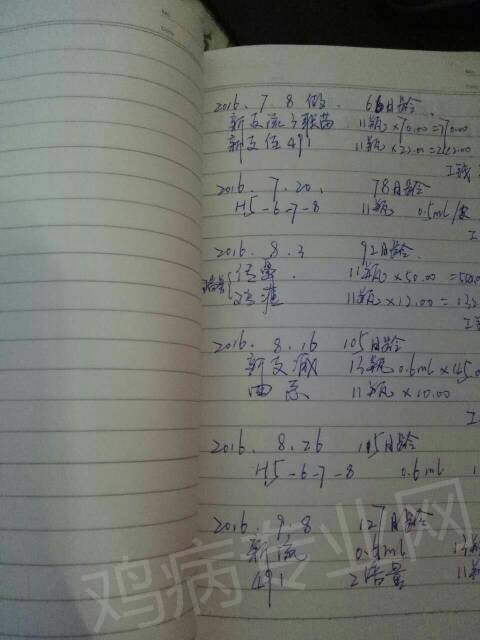 2016. 7 8 做. 66日龄.
新支流三联苗 11瓶×70.00=770.00
新支位491 11瓶×22.00=242.00
工钱
2016. 7. 20. 78日龄
H5-6-7-8 11瓶 0.5ml/只
工
2016. 8. 3 92日龄.
11瓶×50.00
11瓶×12.00=132
工钱
2016. 8. 16 105日龄
新支减 13瓶 0.6ml×45.0
11瓶×10.00
工
2016. 8. 26 115日龄
H5-6-7-8 0.6ml
2016. 9. 8 127日龄
新流 0.6ml 13瓶
491 2倍量 11瓶
鸡病专业网